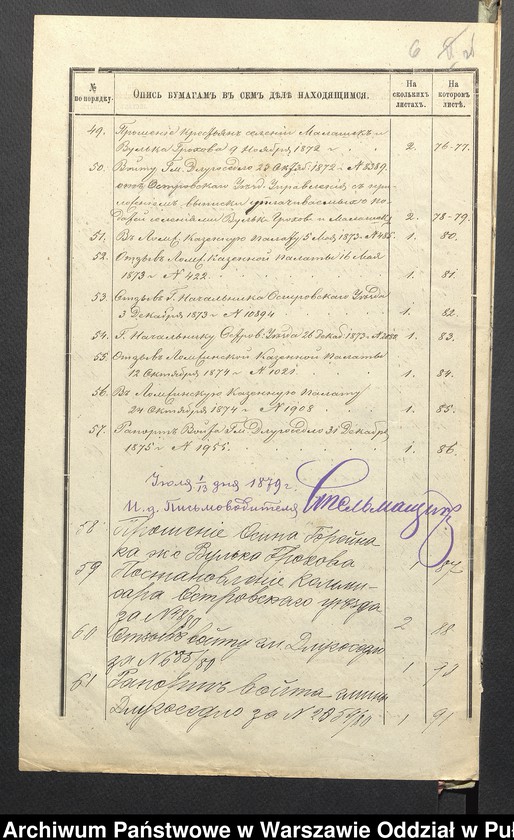 6
№ по порядку.
Опись бумагамъ въ семъ дѣлѣ находящимся.
На сколькихъ листахъ.
На которомъ листѣ.
49. Прошеніе крестьянъ селеній Малашекъ и
Вулька Грохова 9 Ноября 1872 г. 2. 76-77.
50. Войту Гм. Длугоседло 1872 г. № 8389
Островскаго Уѣзд. Управленія съ при-
ложеніемъ выписки уплачиваемыхъ по-
датей селеніями Вулька Грохов и Малашекъ 2. 78-79.
51. Въ Ломж. Казенную Палату 5 Мая 1873 г. № 485. 1. 80.
52. Отзывъ Ломж. Казенной Палаты 16 Мая
1873 г. № 422 1. 81.
53. Отзывъ Г. Начальника Островскаго Уѣзда
3 Декабря 1873 г. № 10894 1. 82.
54. Г. Начальнику Остров. Уѣзда 26 Декаб. 1873 г. 1. 83.
55. Отзывъ Ломжинской Казенной Палаты
12 Октября 1874 г. № 1021 1. 84.
56. Въ Ломжинскую Казенную Палату
24 Октября 1874 г. № 1908 1. 85.
57. Рапортъ Войта Гм. Длугоседло 31 Декабря
1875 г. № 1955 1. 86.
Іюля 1/13 дня 1879 г.
И. д. Письмоводителя
58 Прошеніе Осипа
ка жс Вулька Грохова 1 87
59 Постановленіе комми-
сара Островскаго уѣзда
за № 2 88
60 войту гм. Длугоседло
за № 1
61 Рапортъ войта гмины
Длугоседло за № 1 91
Archiwum Państwowe w Warszawie Oddział w Puł